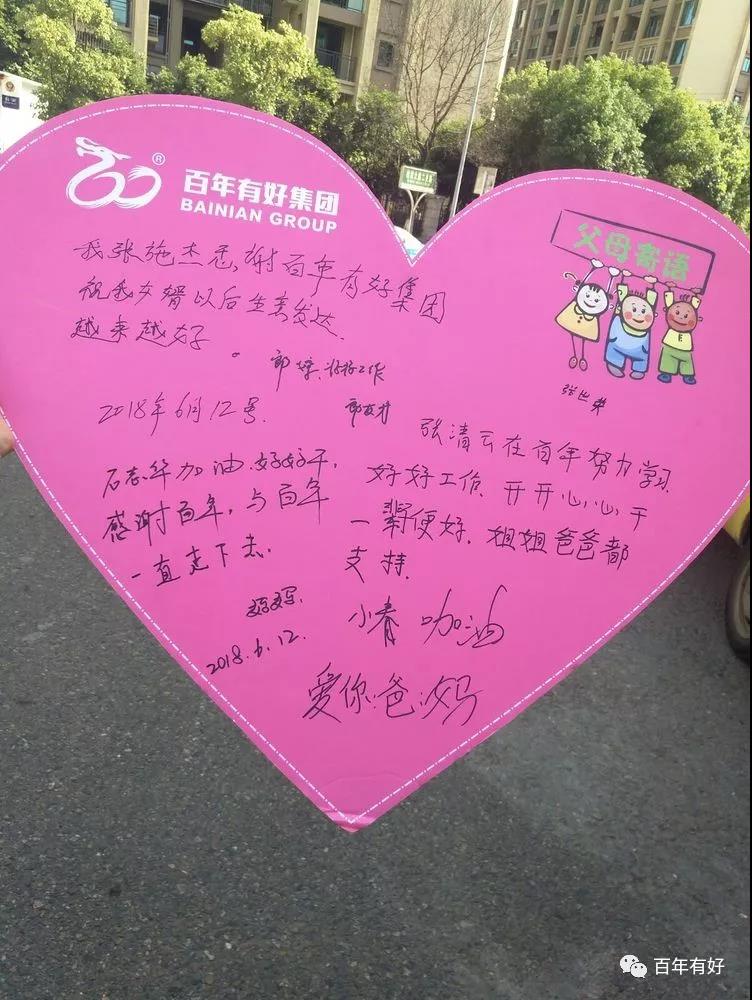 百年有好集团
BAINIAN GROUP
®
父母寄语
我张施杰悉,谢百年有好集团
祝我女婿以后生意发达.
越来越好。
好好工作
2018年6月12号.
张世荣
石志华加油.好好干,
感谢百年,与百年
一直走下去.
妈妈.
2018.6.12.
张清云在百年努力学习.
好好工作.开开心心,干
一辈便好.姐姐爸爸都
支持.
小春 加油
爱你.爸.妈
百年有好